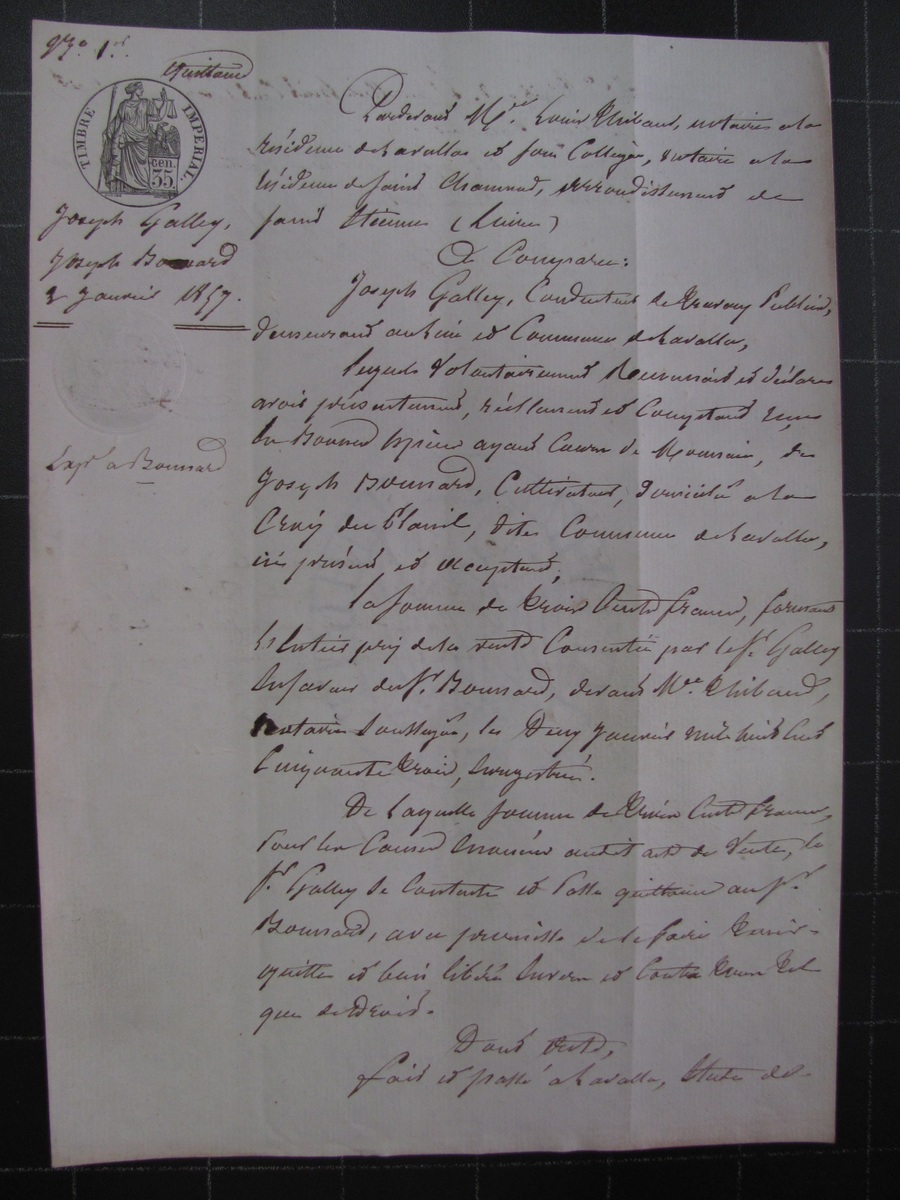 No. 1er.
Quittance
TIMBRE IMPERIAL.
35 cen.
Joseph Galley,
Joseph Bonnard
2 Janvier 1857.
Exp. a Bonnard
Pardevant Me. Louis Thibaud, notaire a la
résidence de Lavalla et son Collègue, notaire a la
résidence de Saint Chamond, arrondissement de
Saint Etienne (Loire)
A Comparu:
Joseph Galley, Conducteur de travaux Publics,
demeurant au lieu et Commune de Lavalla,
lequel volontairement Reconnait et déclare
avoir présentement, réellement et Comptant reçu
En Bonnes Espèces ayant Cours de Monnaie, de
Joseph Bonnard, Cultivateur, domicilié a la
du Planil, dite Commune de Lavalla,
ici présent et acceptant,
la somme de trois Cents francs, formant
l'Entier prix de la vente Consentie par le Sr. Galley
En faveur du Sr. Bonnard, devant Me. Thibaud,
notaire Soussigné, le Deux Janvier mil huit Cent
Cinquante trois, Enregistré.
De laquelle somme de trois Cents francs,
pour les Causes Enoncées audit acte de Vente, le
Sr. Galley Se Contente et passe quittance au Sr.
Bonnard, avec promesse de le faire tenir
quitte et bien libéré Envers et Contre tous tel
que de droit.
Dont Acte,
fait et passé a Lavalla, Etude de